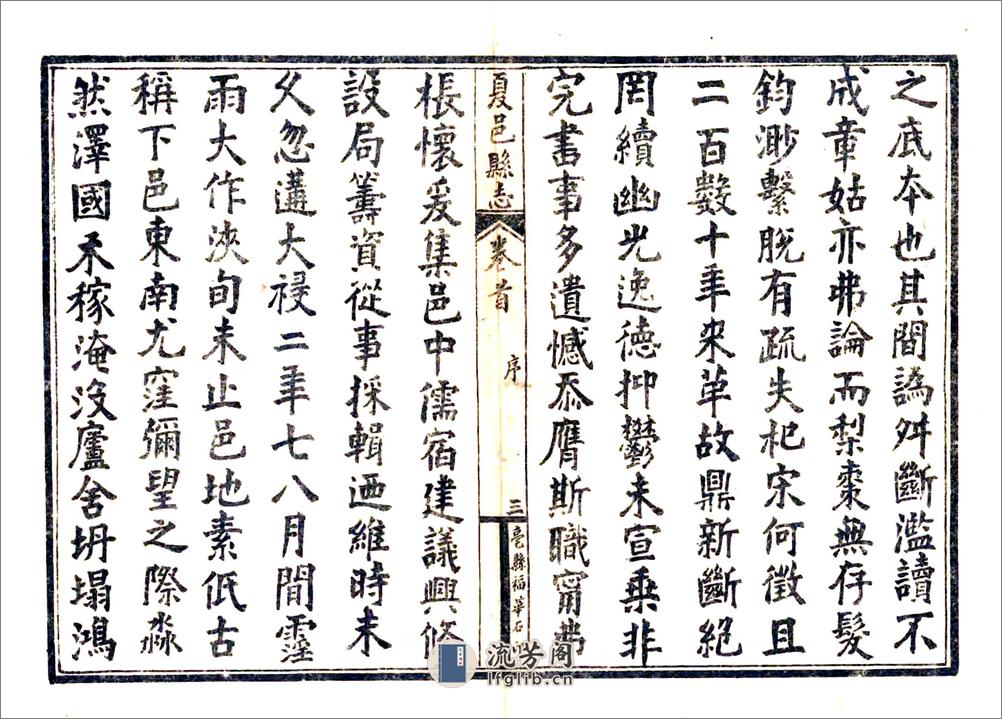 之底本也其間譌舛斷濫讀不
成章姑亦弗論而梨棗無存髮
鈞渺繫脫有疏失杞宋何徵且
二百數十年來革故鼎新斷絕
罔續幽光逸德抑鬱未宣乗非
完書事多遺憾忝膺斯職甯弗
夏邑縣志 卷首 序 三 亳縣福華石
棖懷爰集邑中儒宿建議興修
設局籌資從事採輯迺維時未
久忽遘大祲二年七八月間霪
雨大作浹旬未止邑地素低古
稱下邑東南尤窪彌望之際淼
然澤國禾稼淹沒廬舍坍塌鴻
流芳阁
lfglib.cn